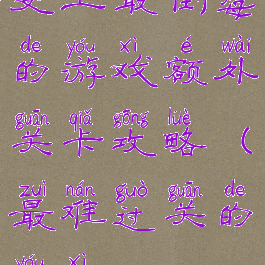 de yóu xì é wài
的游戏额外
guān qiǎ gōng lüè
关卡攻略（
zuì nán guò guān de
最难过关的
yóu xì